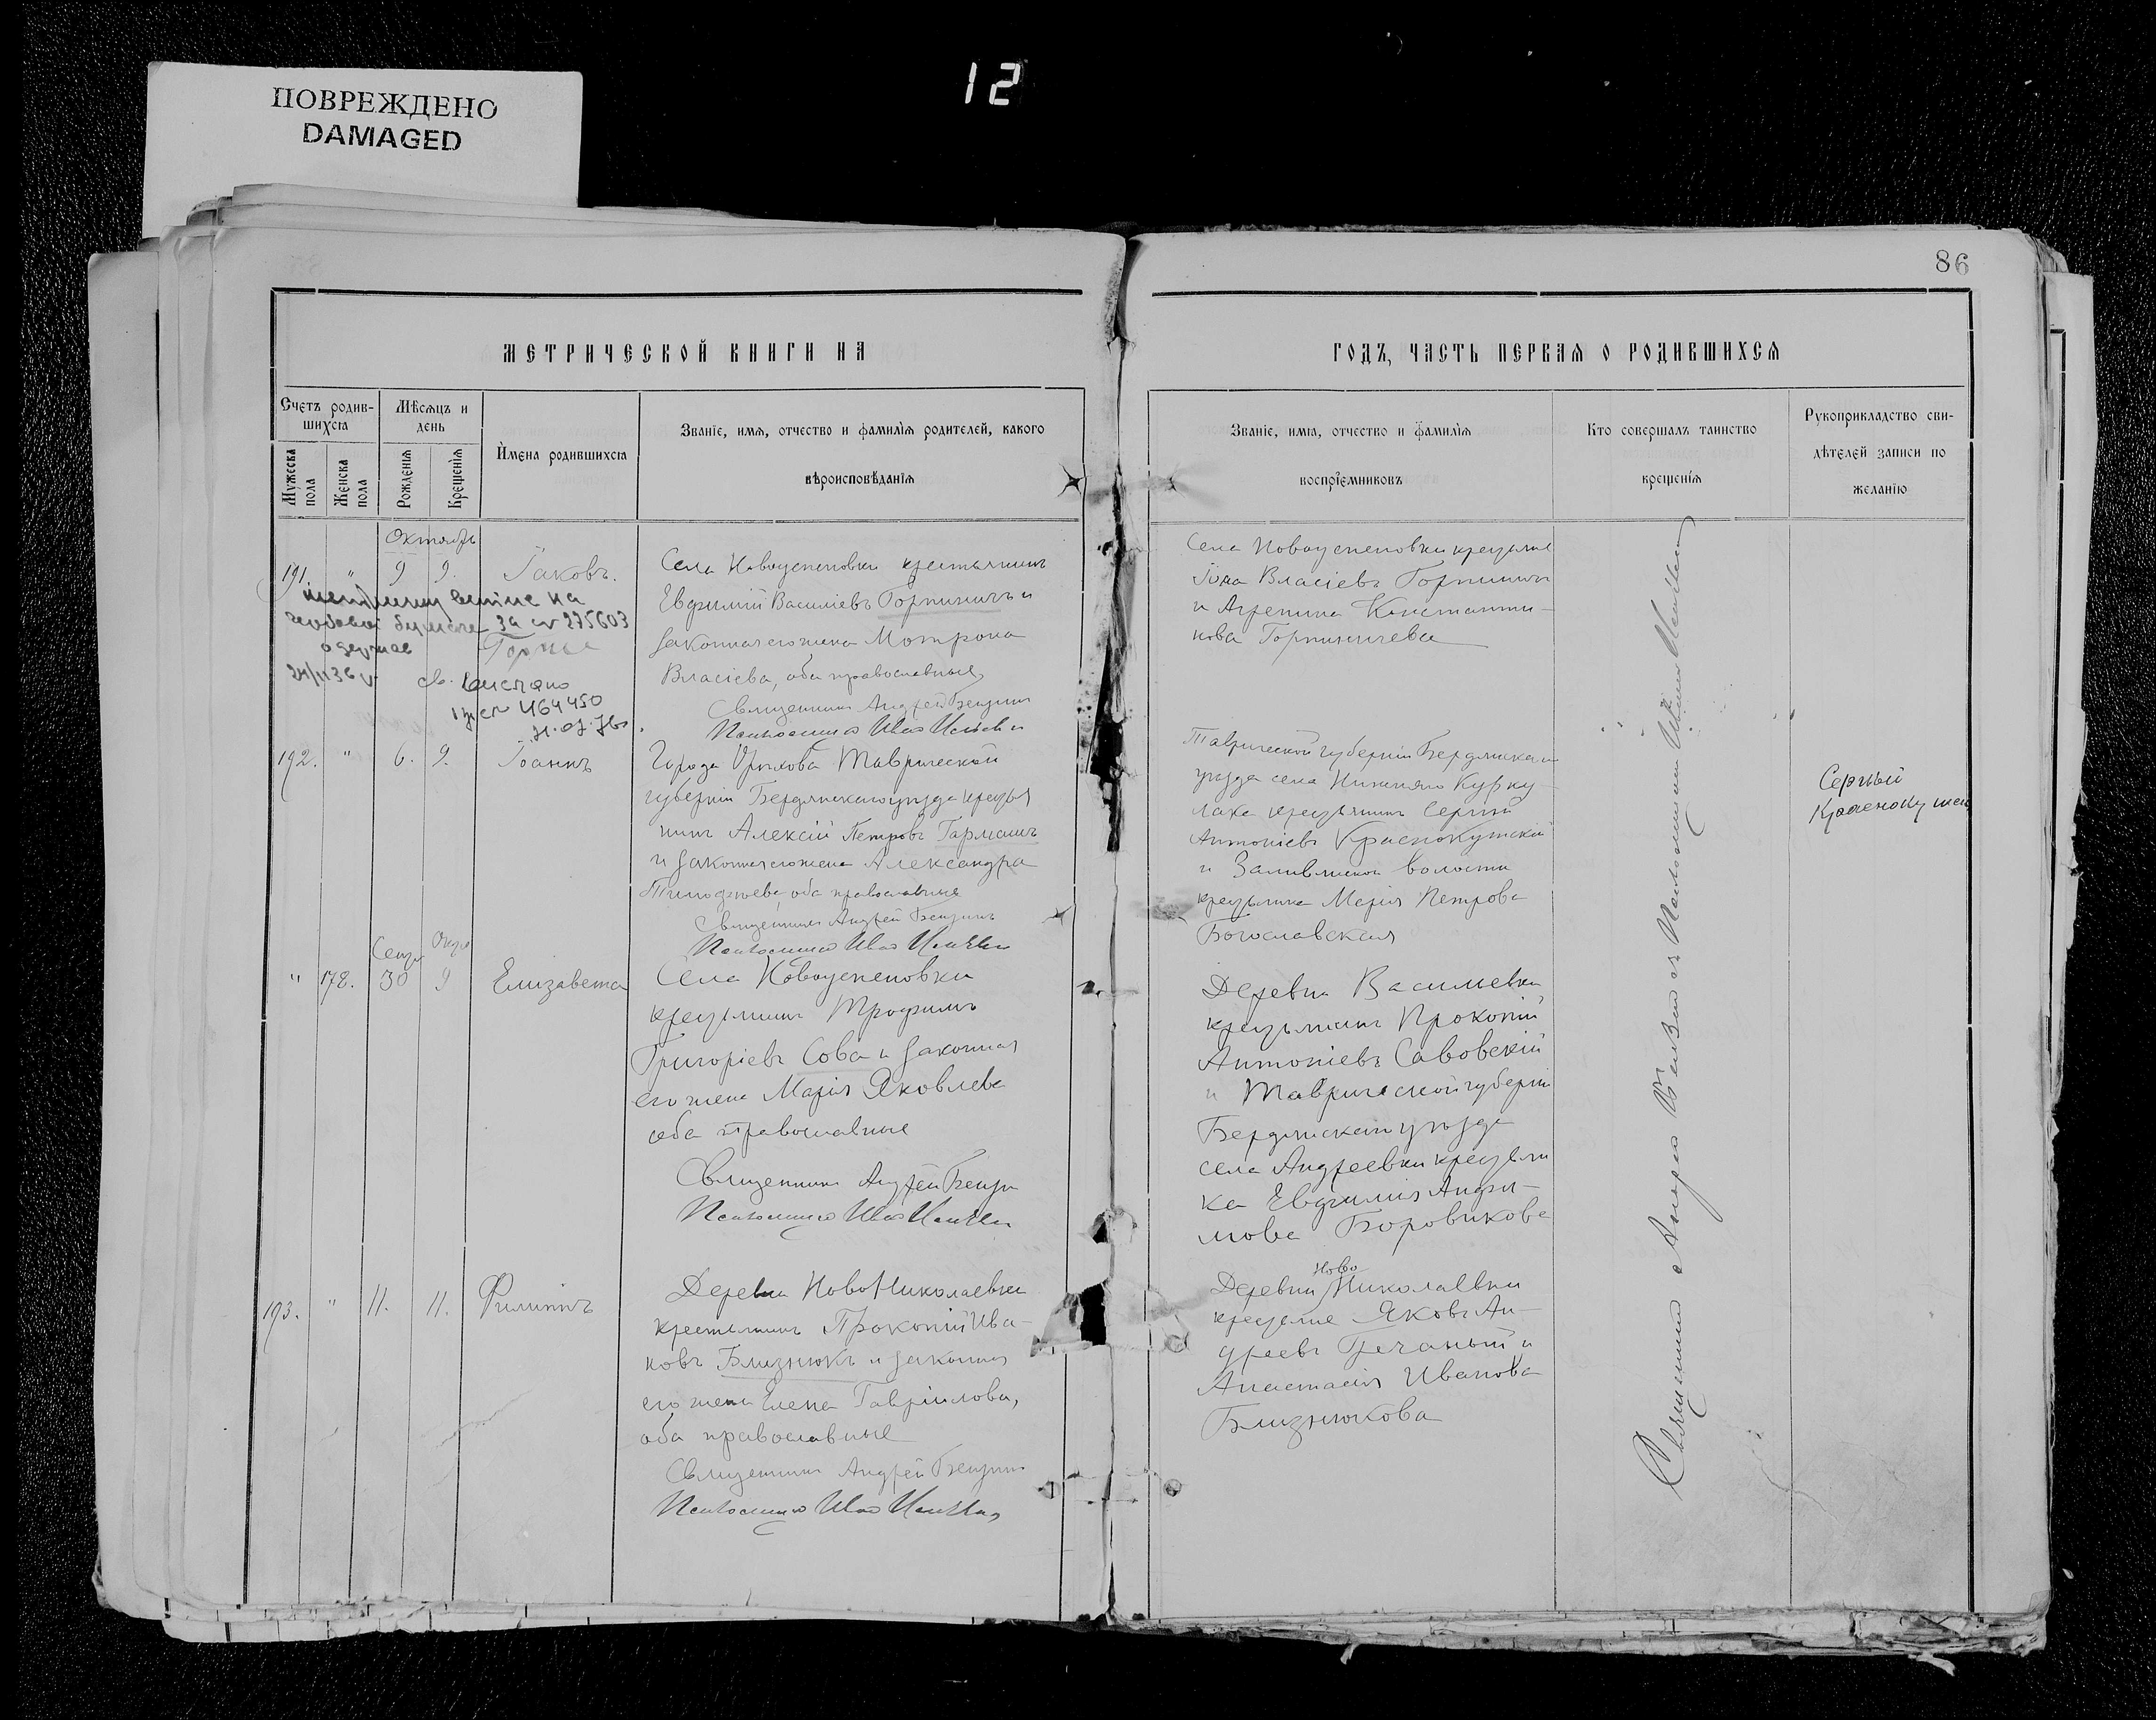 ПОВРЕЖДЕНО
DAMAGED
12
86
МЕТРИЧЕСКОЙ КНИГИ НА
ГОДЪ, ЧАСТЬ ПЕРВАЯ О РОДИВШИХСЯ
Счетъ родив-
шихся
Мѣсяцъ и
день
Мужеска
пола
Женска
пола
Рожденія
Крещенія
Имена родившихся
Званіе, имя, отчество и фамилія родителей, какого
вѣроисповѣданія
Званіе, имя, отчество и фамилія
воспріемниковъ
Кто совершалъ таинство
крещенія
Рукоприкладство сви-
дѣтелей записи по
желанію
Октябрь
191. " 9 9. Іаковъ.
Села Новоуспеновки крестьянинъ
Евфимій Василіевъ Горпиничъ и
законная его жена Мотрона
Власіева, оба православные
Священникъ Андрей
Псаломщикъ Иван
на
бумаге за № 275603
одержав
24/II 36
464450
Села Новоуспеновки крестьяне
Іона Власіевъ
и Агрепина Константи-
нова Горпиничева
192. " 6. 9. Іоаннъ
Города Орѣхова Таврической
губерніи Бердянскаго уѣзда крестья
нинъ Алексій Петровъ Гармашъ
и законная его жена Александра
Тимофѣева, оба православные
Священникъ Андрей
Псаломщикъ Иван
Таврической губерніи Бердянскаго
уѣзда села Нижняго Курку-
лака крестьянинъ Сергій
Антоніевъ Краснокутскій
и волости
крестьянка Марія Петрова
Богославская
Сергный
Сент Окт
" 178. 30 9 Елизавета
Села Новоуспеновки
крестьянинъ Трофимъ
Григоріевъ Сова и законная
его жена Марія Яковлева
оба православные
Священникъ Андрей
Псаломщикъ Иван
Деревни Василіевки
крестьянинъ Прокопій
Антоніевъ Савовскій
и Таврической губерніи
Бердянскаго уѣзда
села Андреевки крестьян
ка Евфимія Анфи-
мова Боровикова
193. " 11. 11. Филиппъ
Деревни НовоНиколаевки
крестьянинъ Прокопій Ива-
новъ Близнюкъ и законная
его жена Елена Гавріилова,
оба православные
Священникъ Андрей
Псаломщикъ Иван
Ново
Деревни Николаевки
крестьяне Яковъ Ан-
дреевъ Гречаный и
Анастасія Иванова
Близнюкова
Священникъ Андрей